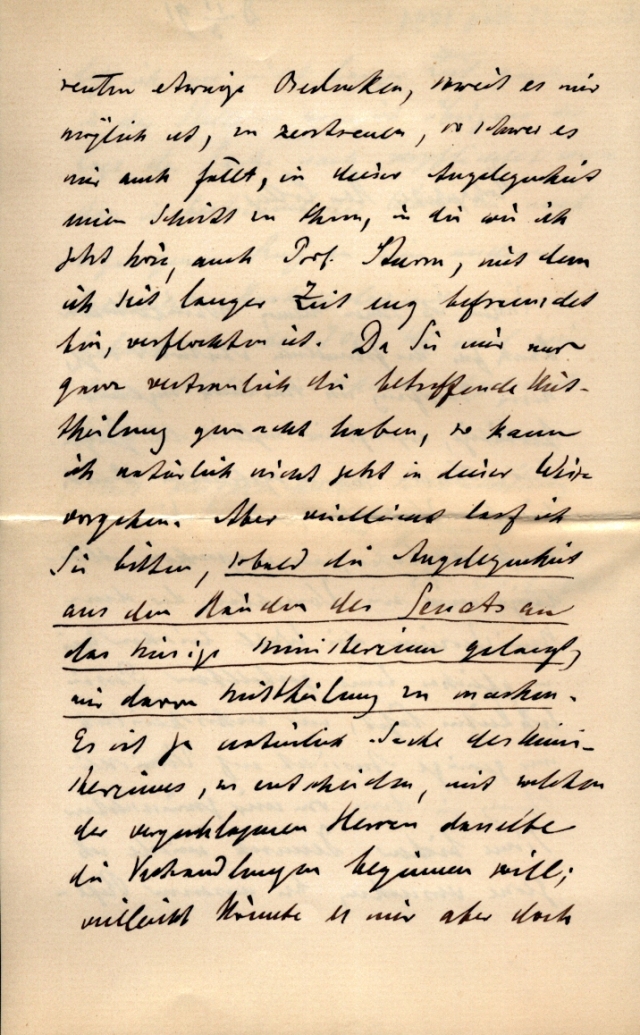 renten etwaige Bedenken, soweit es mir
möglich ist, zu zerstreuen, so schwer es
mir auch fällt, in dieser Angelegenheit
einen Schritt zu thun, in die wie ich
jetzt höre, auch Prof. Sturm, mit dem
ich seit langer Zeit eng befreundet
bin, verflochten ist. Da Sie mir nur
ganz vertraulich die betreffende Mit-
theilung gemacht haben, so kann
ich natürlich nicht jetzt in dieser Weise
vorgehen. Aber vielleicht darf ich
Sie bitten, sobald die Angelegenheit
aus den Händen des Senats an
das hiesige Ministerium gelangt,
mir davon Mittheilung zu machen.
Es ist ja natürlich Sache des Mini-
steriums, zu entscheiden, mit welchem
der vorgeschlagenen Herren dasselbe
die Verhandlungen beginnen will;
vielleicht könnte es mir aber doch